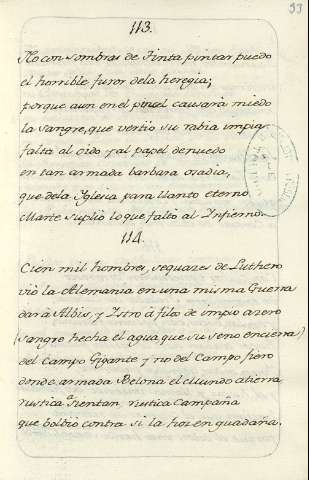 113.
93
No con sombras de Tinta pintar puedo
el horrible furor dela heregia;
porque aun en el pincel causara miedo
la sangre, que vertio su rabia impia
falta al oido y al papel denuedo
en tan armada barbara osadia,
que dela Iglesia para llanto eterno
Marte suplio loque falto al Infierno.
114.
Cien mil hombres, sequazes de Luthero
vio la Alemania en una misma Guerra
dar á Albis, y Istro á filos de impio azero
(sangre hecha el agua que su seno encierra)
del Campo Gigante y no del Campo fiero
donde armada Belona el mundo atierra
rustica rustica Campaña
que bolbio contra si la hoz en guadaña.